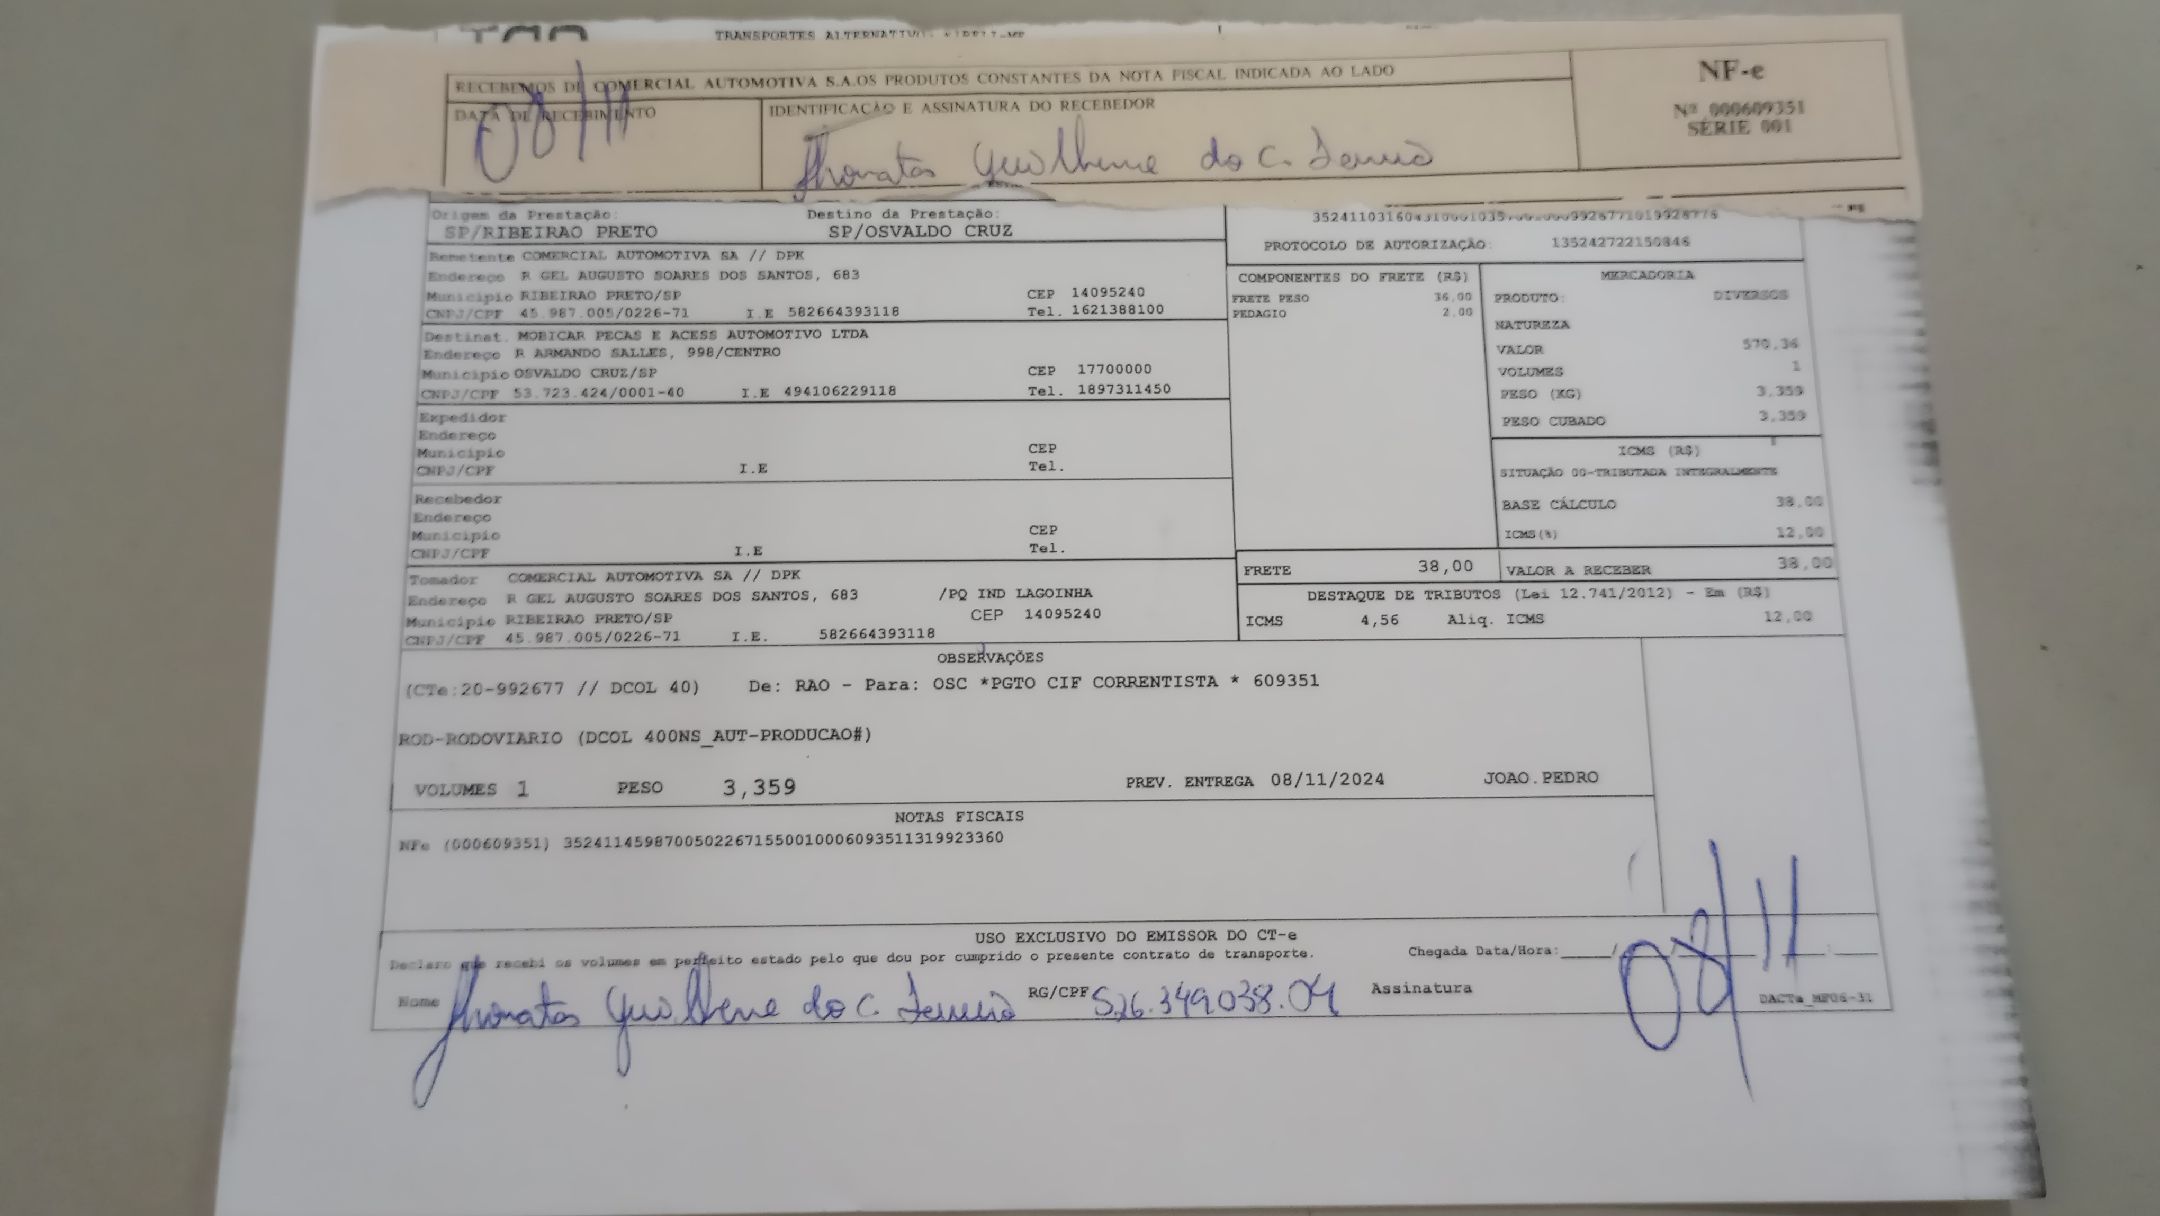 TRANSPORTES ALTERNATIVO
RECEBEMOS DE COMERCIAL AUTOMOTIVA S.A.OS PRODUTOS CONSTANTES DA NOTA FISCAL INDICADA AO LADO
DATA DE RECEBIMENTO
08/11
IDENTIFICAÇÃO E ASSINATURA DO RECEBEDOR
Jhonatas Guilherme do C.
NF-e
Nº 000609351
SÉRIE 001
Origem da Prestação: Destino da Prestação:
SP/RIBEIRAO PRETO SP/OSVALDO CRUZ
PROTOCOLO DE AUTORIZAÇÃO: 135242722150846
Remetente COMERCIAL AUTOMOTIVA SA // DPK
Endereço R GEL AUGUSTO SOARES DOS SANTOS, 683
Municipio RIBEIRAO PRETO/SP CEP 14095240
CNPJ/CPF 45.987.005/0226-71 I.E 582664393118 Tel. 1621388100
Destinat. MOBICAR PECAS E ACESS AUTOMOTIVO LTDA
Endereço R ARMANDO SALLES, 998/CENTRO
Municipio OSVALDO CRUZ/SP CEP 17700000
CNPJ/CPF 53.723.424/0001-40 I.E 494106229118 Tel. 1897311450
Expedidor
Endereço
Municipio CEP
CNPJ/CPF I.E Tel.
Recebedor
Endereço
Municipio CEP
CNPJ/CPF I.E Tel.
Tomador COMERCIAL AUTOMOTIVA SA // DPK
Endereço R GEL AUGUSTO SOARES DOS SANTOS, 683 /PQ IND LAGOINHA
Municipio RIBEIRAO PRETO/SP CEP 14095240
CNPJ/CPF 45.987.005/0226-71 I.E. 582664393118
COMPONENTES DO FRETE (R$)
FRETE PESO 36,00
PEDAGIO 2.00
MERCADORIA
PRODUTO: DIVERSOS
NATUREZA
VALOR 570,36
VOLUMES 1
PESO (KG) 3,359
PESO CUBADO 3,359
ICMS (R$)
SITUAÇÃO 00-TRIBUTADA INTEGRALMENTE
BASE CÁLCULO 38,00
ICMS(%) 12,00
FRETE 38,00 VALOR A RECEBER 38,00
DESTAQUE DE TRIBUTOS (Lei 12.741/2012) - Em (R$)
ICMS 4,56 Aliq. ICMS 12,00
OBSERVAÇÕES
(CTe:20-992677 // DCOL 40) De: RAO - Para: OSC *PGTO CIF CORRENTISTA * 609351
ROD-RODOVIARIO (DCOL 400NS_AUT-PRODUCAO#)
VOLUMES 1 PESO 3,359 PREV. ENTREGA 08/11/2024 JOAO.PEDRO
NOTAS FISCAIS
NFe (000609351) 35241145987005022671550010006093511319923360
USO EXCLUSIVO DO EMISSOR DO CT-e
Declaro que recebi os volumes em perfeito estado pelo que dou por cumprido o presente contrato de transporte. Chegada Data/Hora:
08/11
Nome Jhonatas Guilherme do C. RG/CPF 526.349.038.04 Assinatura
DACTe_MF06-31